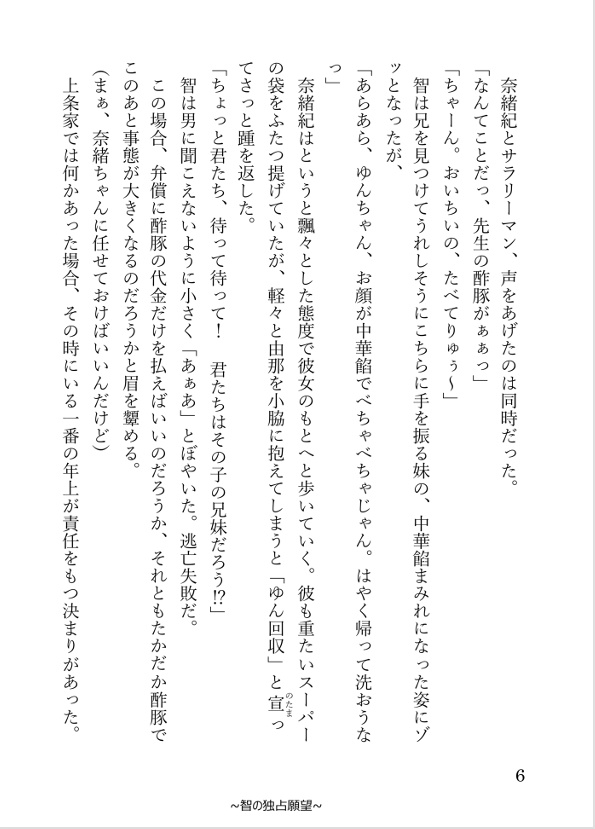 奈緒紀とサラリーマン、声をあげたのは同時だった。
「なんてことだっ、先生の酢豚がぁぁっ」
「ちゃーん。おいちいの、たべてりゅぅ～」
智は兄を見つけてうれしそうにこちらに手を振る妹の、中華餡まみれになった姿にゾ
ッとなったが、
「あらあら、ゆんちゃん、お顔が中華餡でべちゃべちゃじゃん。はやく帰って洗おうな
っ」
奈緒紀はというと飄々とした態度で彼女のもとへと歩いていく。彼も重たいスーパー
の袋をふたつ提げていたが、軽々と由那を小脇に抱えてしまうと「ゆん回収」と宣っ
のたま
てさっと踵を返した。
「ちょっと君たち、待って待って！　君たちはその子の兄妹だろう!?」
智は男に聞こえないように小さく「あぁあ」とぼやいた。逃亡失敗だ。
この場合、弁償に酢豚の代金だけを払えばいいのだろうか、それともたかだか酢豚で
このあと事態が大きくなるのだろうかと眉を顰める。
(まぁ、奈緒ちゃんに任せておけばいいんだけど)
上条家では何かあった場合、その時にいる一番の年上が責任をもつ決まりがあった。
6
~智の独占願望~